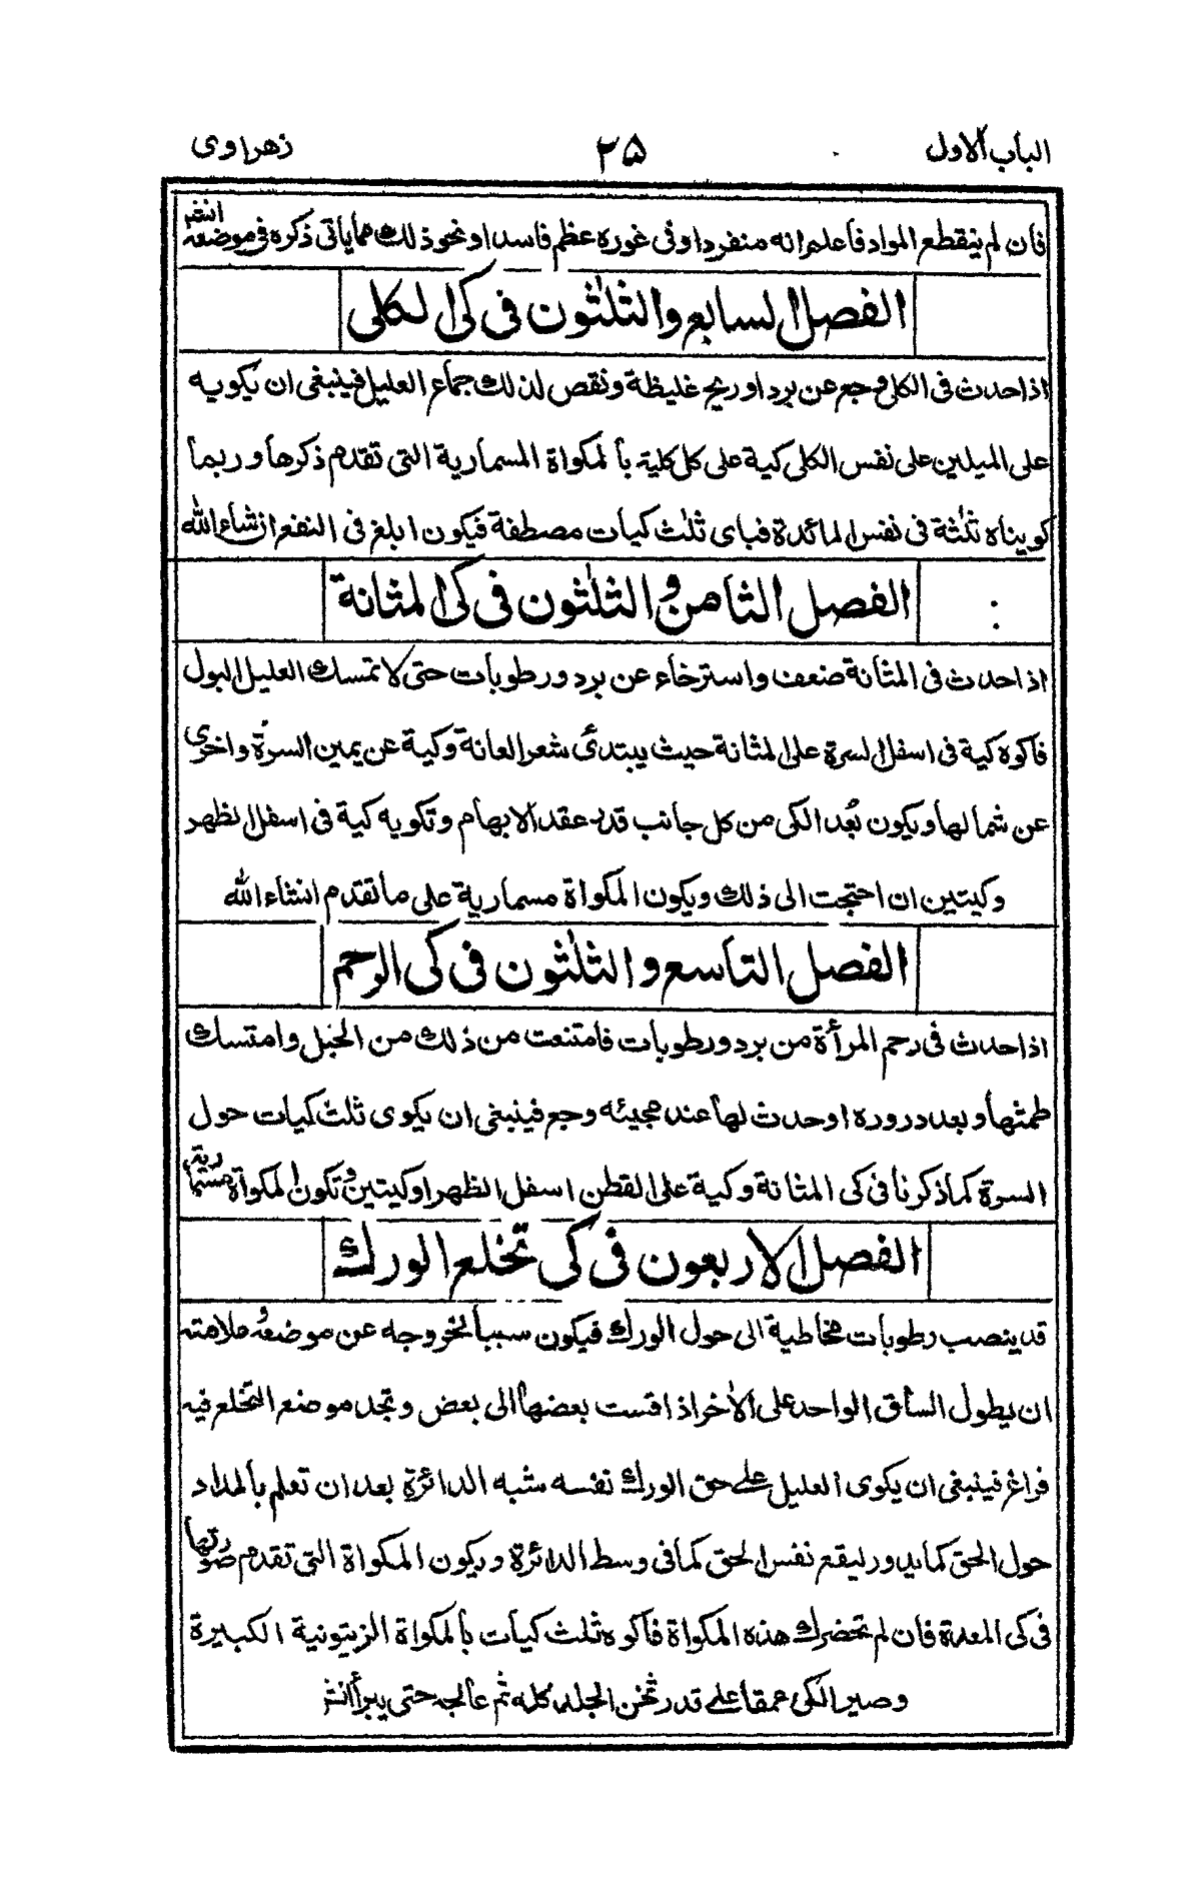 الباب الاول ۲۵ زهراوی
فان لم ينقطع المواد فاعلم انه منفرد اوفی غوره عظم فاسد او نحو ذلك مما ياتی ذكره فی موضعه انشـ
الفصل السابع والثلٰثون فی کی الکلی
اذا حدث فی الکلی وجع عن برد او ريح غليظة ونقص لذلك جماع العليل فينبغی ان يكويه
علی الميلين علی نفس الکلی كية علی كل كلية بالمكواة المسمارية التی تقدم ذكرها وربما
كويناه ثلٰثة فی نفس المائدة فبای ثلٰث كيات مصطفة فيكون ابلغ فی النفع انشاء الله
الفصل الثامن والثلٰثون فی کی المثانة
اذا حدث فی المثانة ضعف واسترخاء عن برد ورطوبات حتی لا تمسك العليل البول
فاكوه كية فی اسفل السرة علی المثانة حيث يبتدئ شعر العانة وكية عن يمين السرة واخری
عن شمالها ويكون بُعد الكی من كل جانب قدر عقد الابهام وتكويه كية فی اسفل الظهر
وكيتين ان احتجت الی ذلك ويكون المكواة مسمارية علی ما تقدم انشاء الله
الفصل التاسع والثلٰثون فی کی الرحم
اذا حدث فی رحم المرأة من برد ورطوبات فامتنعت من ذلك من الحبل وامتسك
طمثها وبعد دروره اوحدث لها عند مجيئه وجع فينبغی ان يكوی ثلث كيات حول
السرة كما ذكرنا فی کی المثانة وكية علی القطن اسفل الظهر او كيتين وتكون المكواة مسمارية
الفصل الاربعون فی کی تخلع الورك
قد ينصب رطوبات مخاطية الی حول الورك فيكون سببا لخروجه عن موضعه وعلامته
ان يطول الساق الواحد علی الاٰخر اذا قست بعضها الی بعض وتجد موضع التخلع فيه
فراغ فينبغی ان يكوی العليل علے حق الورك نفسه شبه الدائرة بعد ان تعلم بالمداد
حول الحق كما يدور ليقع نفس الحق كما فی وسط الدائرة ويكون المكواة التی تقدم صورتها
فی کی المعدة فان لم تحضرك هذه المكواة فاكوه ثلث كيات بالمكواة الزيتونية الكبيرة
وصير الكی عمقا علے قدر ثخن الجلد كله ثم عالجه حتی يبرأ انشـ